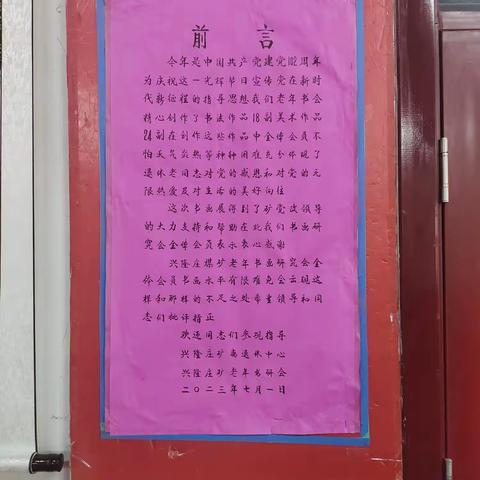 前言
今年是中国共产党建党102周年
为庆祝这一光辉节日宣传党在新时
代新征程的指导思想我们老年书会
精心创作了书法作品18副美术作品
24副在创作这些作品中全体会员不
怕天气炎热等种种困难充分体现了
退休老同志对党的感恩和对党的无
限热爱及对生活的美好向往
这次书画展得到了矿党政领导
的大力支持和帮助在此我们书画研
究会全体会员表示衷心感谢
兴隆庄煤矿老年书画研究会全
体会员书画水平有限难免会出现这
样和那样的不足之处希望领导和同
志们批评指正
欢迎同志们参观指导
兴隆庄矿离退休中心
兴隆庄矿老年书研会
二〇二三年七月一日